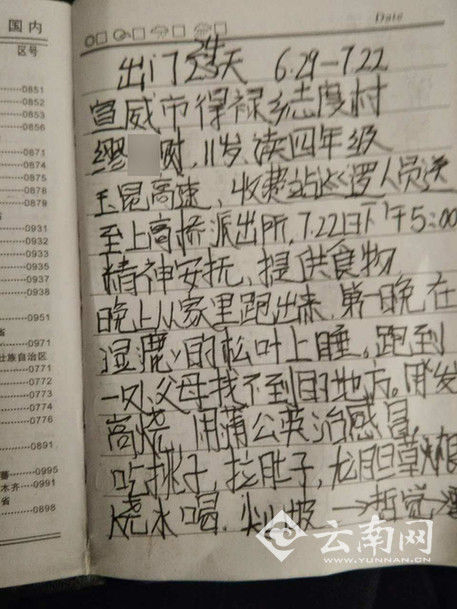 国内
区号
0851
0852
0853
0856
0871
0874
0875
0878
0879
0931
0932
0933
0935
0937
0938
0951
省
壮族自治区
0771
0772
0773
0774
0776
0891
0995
木齐 0991
省
0898
Date
出门 24天 6.29-7.22
宣威市得禄乡志度村
缪 财, 11岁, 读四年级
玉昆高速, 收费站巡逻人员送
至上高桥派出所, 7.22日下午5:00
精神安抚, 提供食物
晚上从家里跑出来, 第一晚在
湿漉漉的松叶上睡。跑到
一处父母找不到的地方。
高烧, 用蒲公英治感冒,
吃桃子, 拉肚子, 龙胆草
烧水喝.
云南网
WWW.YUNNAN.CN